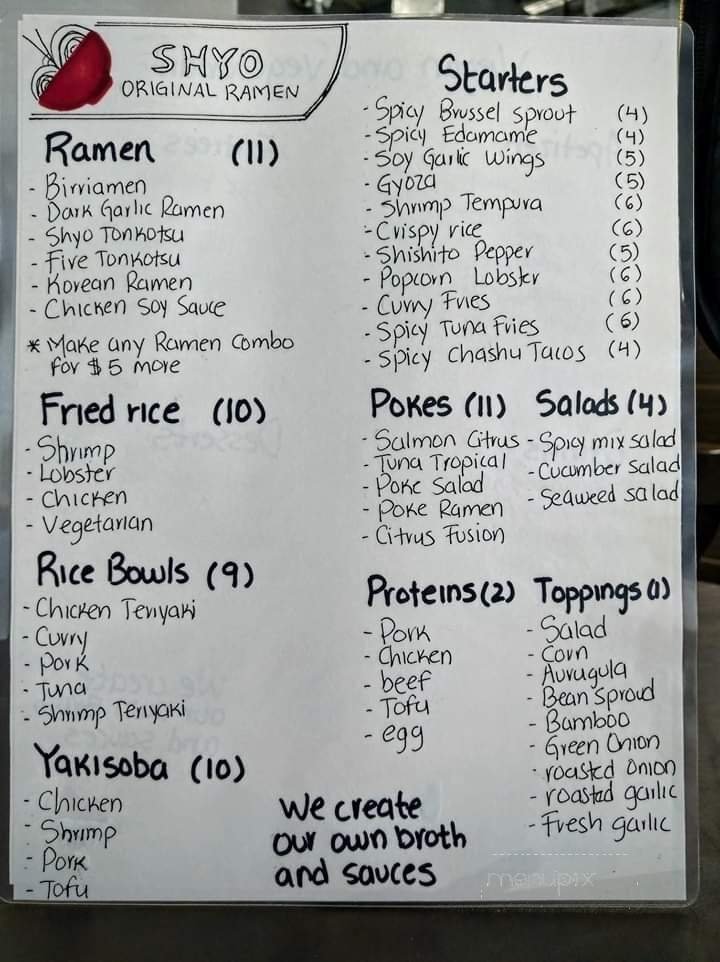 SHYO
ORIGINAL RAMEN
Ramen (11)
- Birriamen
- Dark Garlic Ramen
- Shyo Tonkotsu
- Five Tonkotsu
- Korean Ramen
- Chicken Soy Sauce
* Make any Ramen combo
for $5 more
Fried rice (10)
- Shrimp
- Lobster
- Chicken
- Vegetarian
Rice Bowls (9)
- Chicken Teriyaki
- Curry
- Pork
- Tuna
- Shrimp Teriyaki
Yakisoba (10)
- Chicken
- Shrimp
- Pork
- Tofu
Starters
- Spicy Brussel sprout (4)
- Spicy Edamame (4)
- Soy Garlic Wings (5)
- Gyoza (5)
- Shrimp Tempura (6)
- Crispy rice (6)
- Shishito Pepper (5)
- Popcorn Lobster (6)
- Curry Fries (6)
- Spicy Tuna Fries (6)
- Spicy Chashu Tacos (4)
Pokes (11)
- Salmon Citrus
- Tuna Tropical
- Poke Salad
- Poke Ramen
- Citrus Fusion
Salads (4)
- Spicy mix salad
- Cucumber salad
- Seaweed salad
Proteins (2)
- Pork
- Chicken
- beef
- Tofu
- egg
Toppings (1)
- Salad
- Corn
- Aurugula
- Bean Sproud
- Bamboo
- Green Onion
- roasted onion
- roasted garlic
- Fresh garlic
We create
our own broth
and sauces
menupix